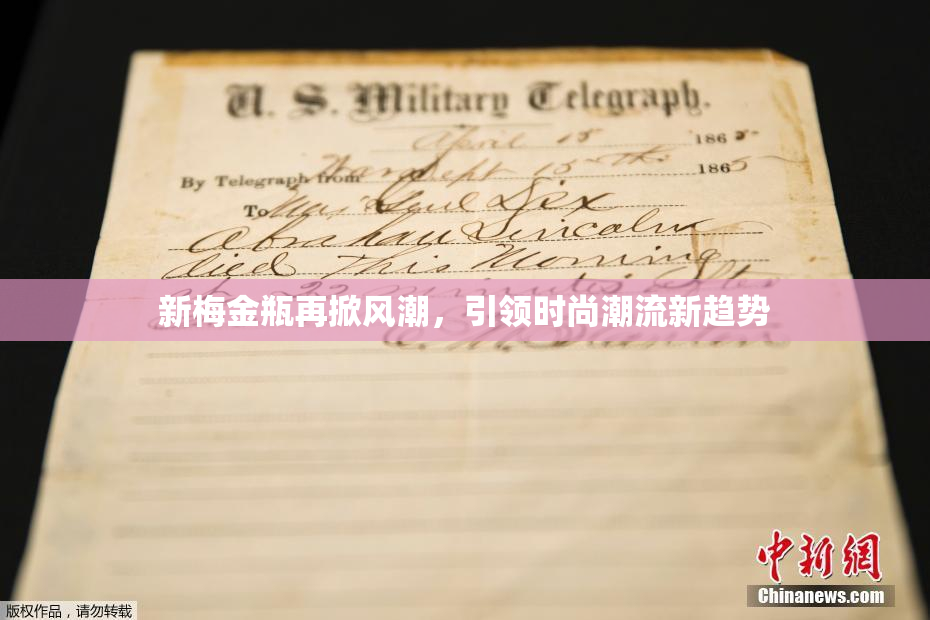 U. S. Military Telegraph.
April 15 1865
By Telegraph from War Dept 15th 1865
To Maj Genl Dix
Abraham Lincoln
died This Morning
at 22 minutes after
新梅金瓶再掀风潮，引领时尚潮流新趋势
E. M. Stanton
中新网
Chinanews.com
版权作品，请勿转载